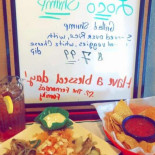 Loco
Shrimp
Grilled Shrimp
Served over Rice, with
veggies, white Cheese
dip
8.77.99
Have a blessed day!
The Fernandos
Family